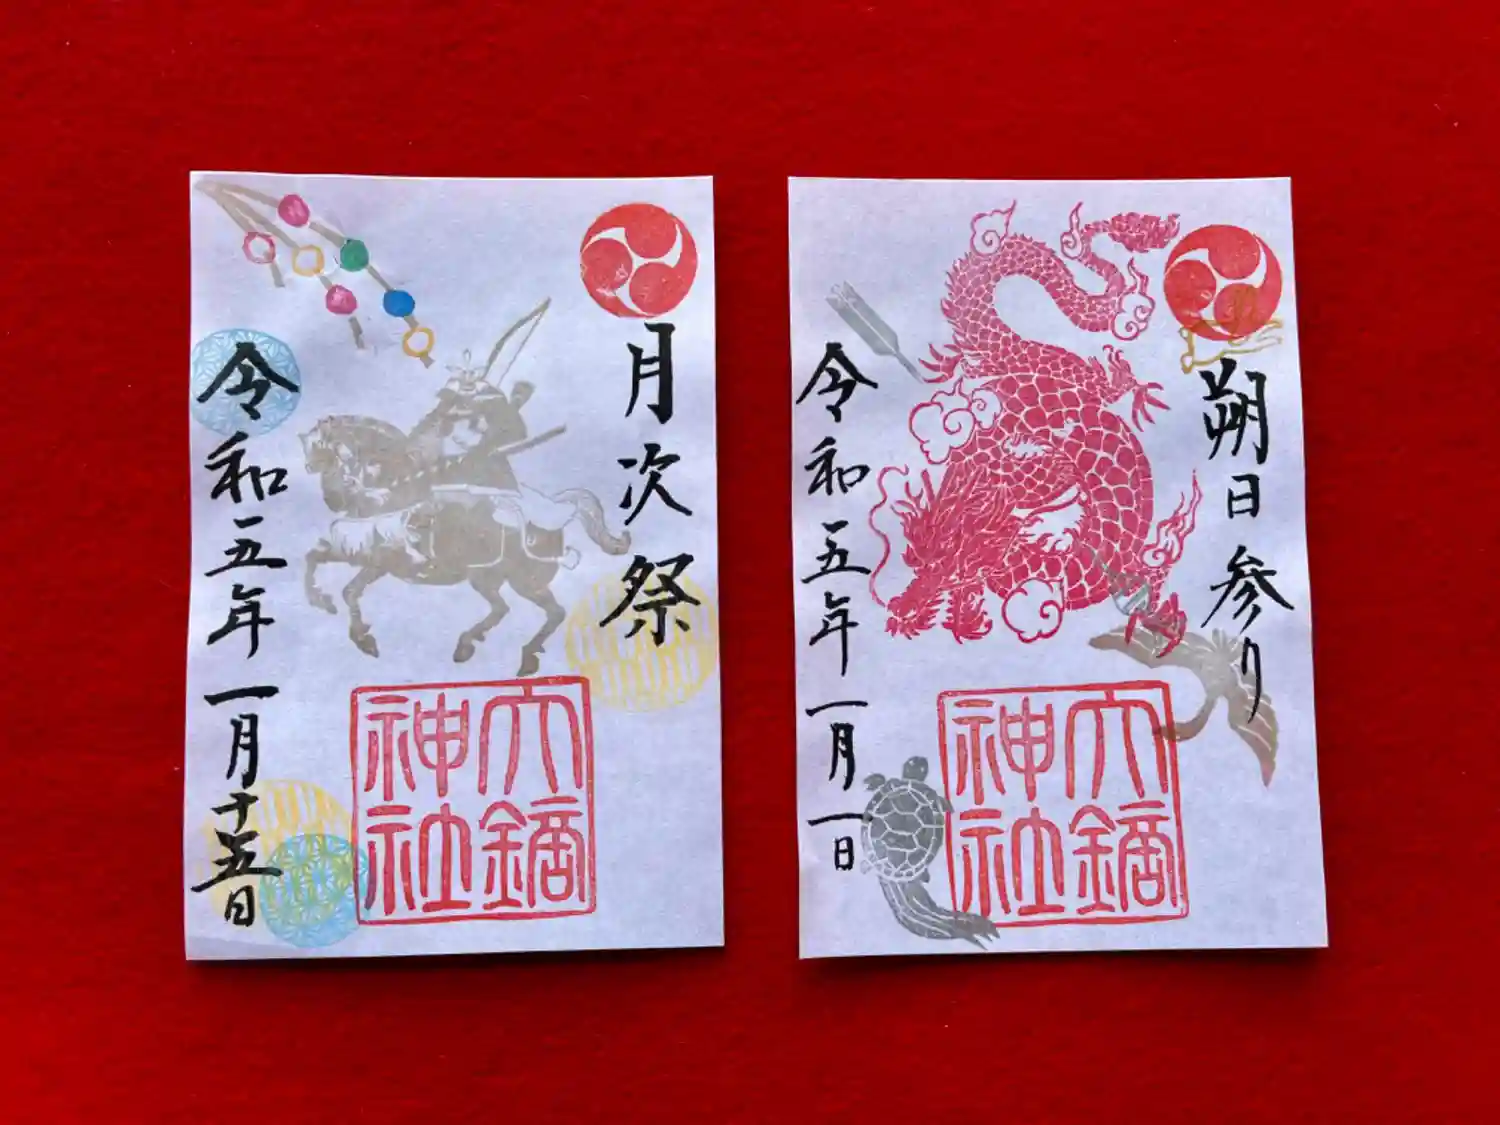 月次祭
令和五年一月十五日
六鏑
神社
朔日参り
令和五年一月一日
六鏑
神社